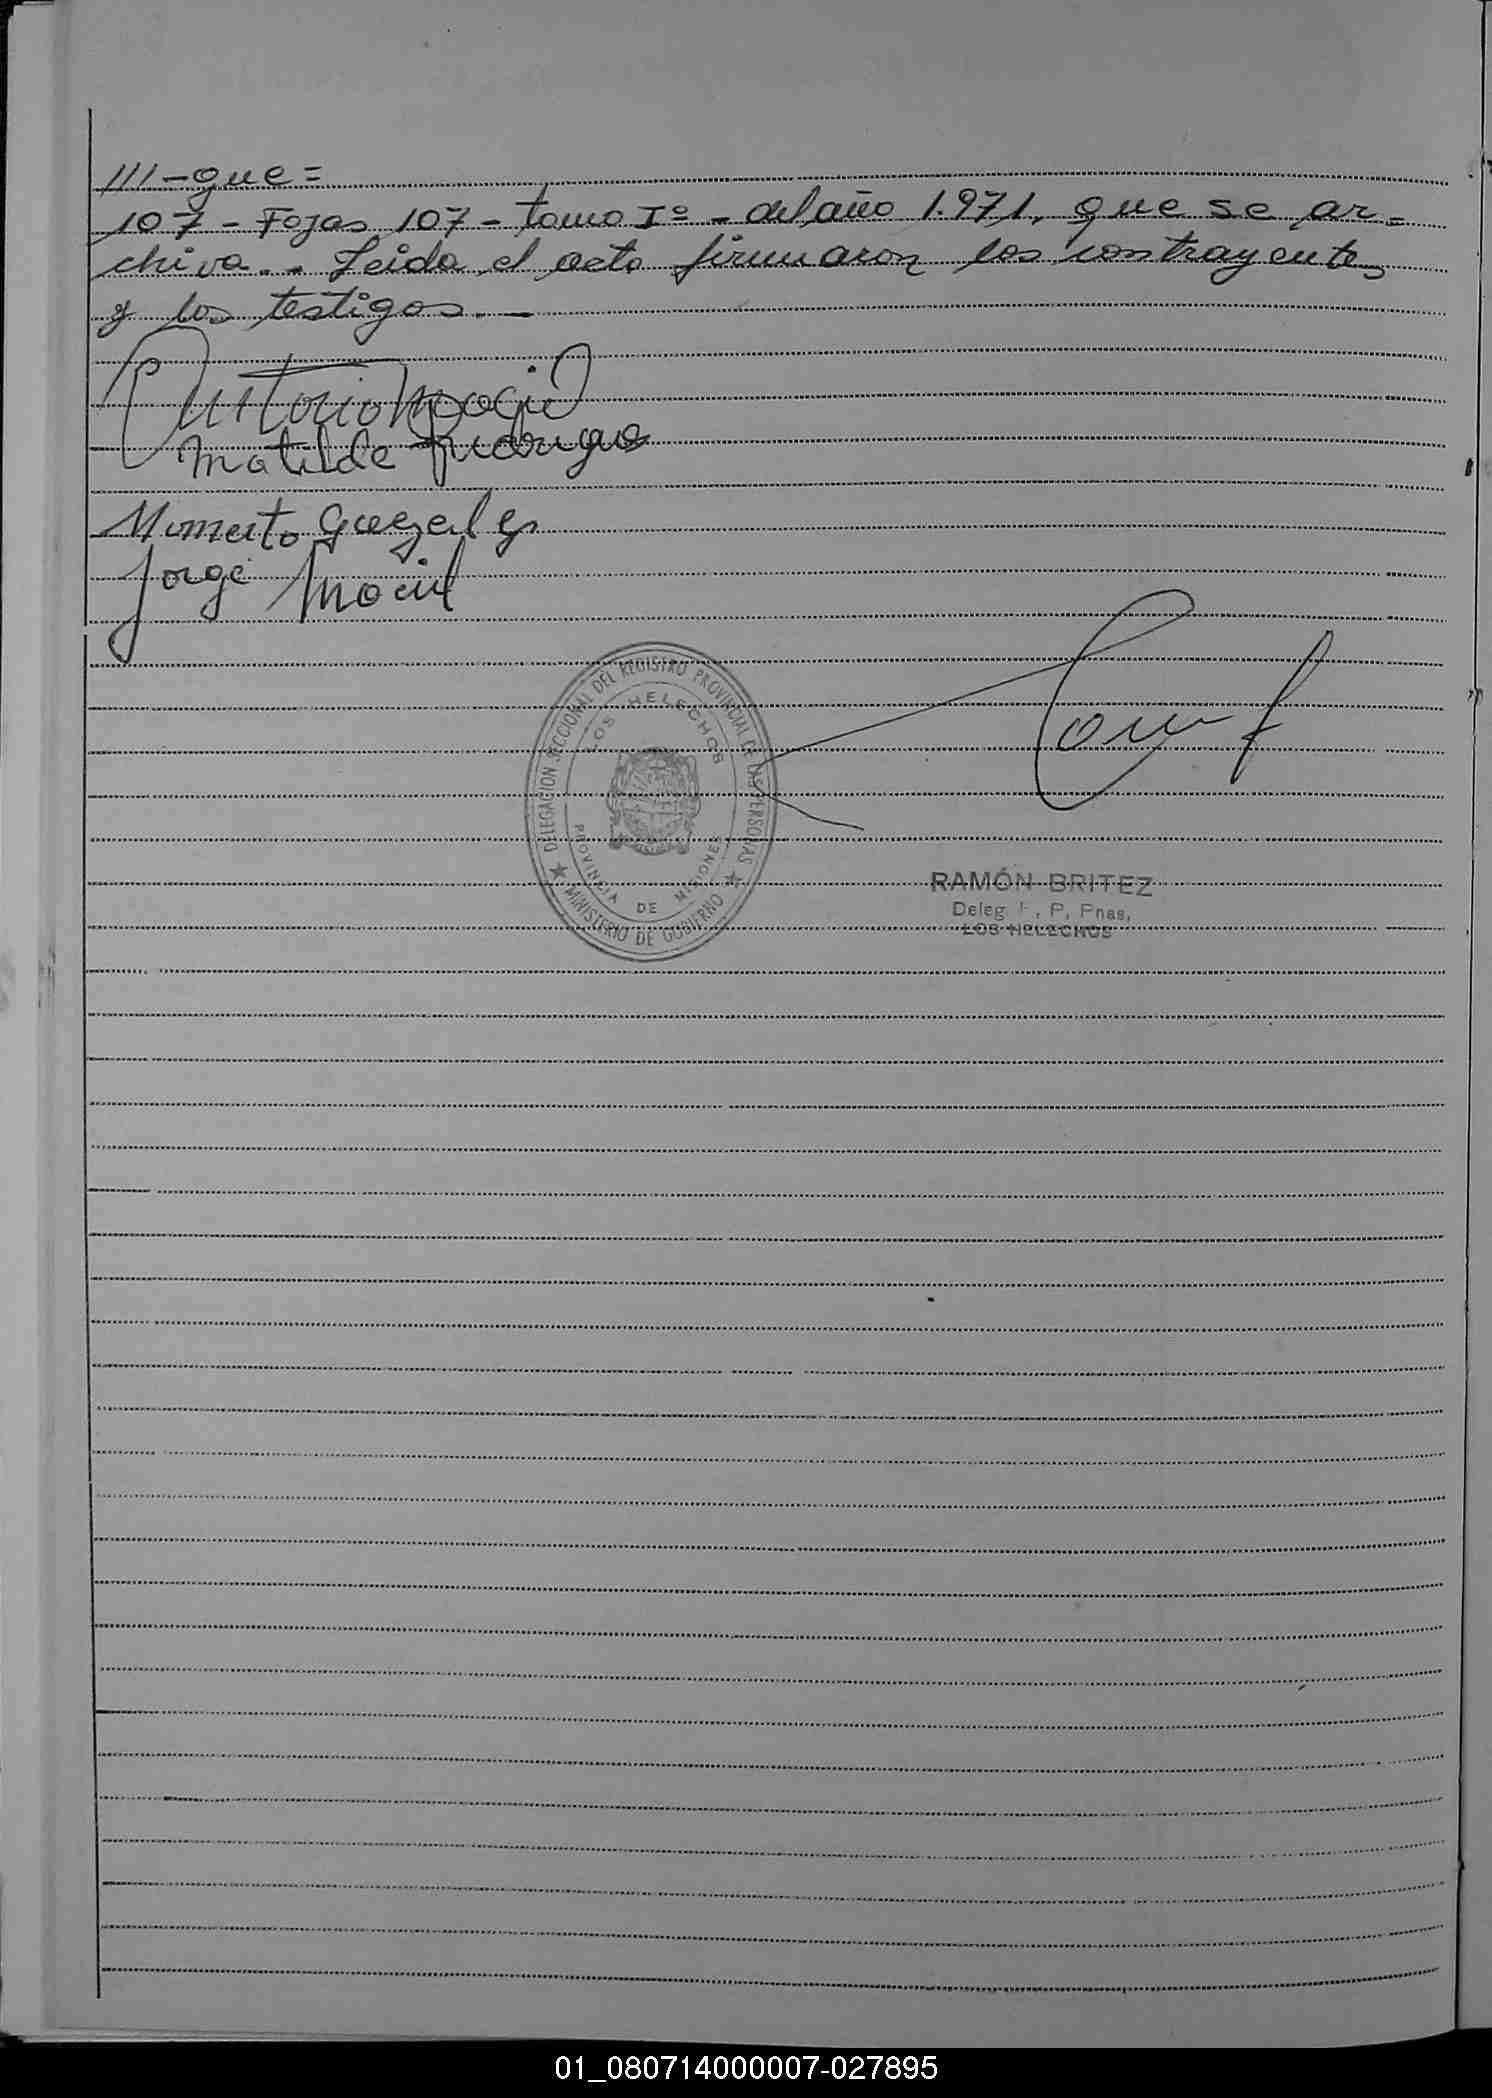 III-que=
107-Fojas 107-tomo Iº-del año 1.971, que se ar=
chiva.- Leida el acta firmaron los contrayentes
y los testigos.-
Antonio
Matilde
Jorge
DELEGACION SECCIONAL DEL REGISTRO PROVINCIAL DE LAS PERSONAS
LOS HELECHOS
PROVINCIA DE MISIONES
MINISTERIO DE GOBIERNO
RAMÓN BRITEZ
Deleg. P. Pnas,
LOS HELECHOS
01_080714000007-027895